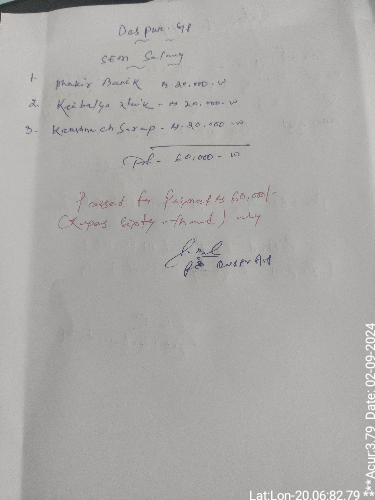 Daspur GP
SEM Salary
1. Phakir Barik Rs 20.000-00
2. Kaibalya Naik - Rs 20.000-00
3. Sarap - Rs. 20.000-00
60.000-00
Passed for Payment Rs 60,000/-
(Rupees Sixty thousand) only
Daspur GP
Lat:Lon-20.06:82.79
***Acur:3.79 Date: 02-09-2024